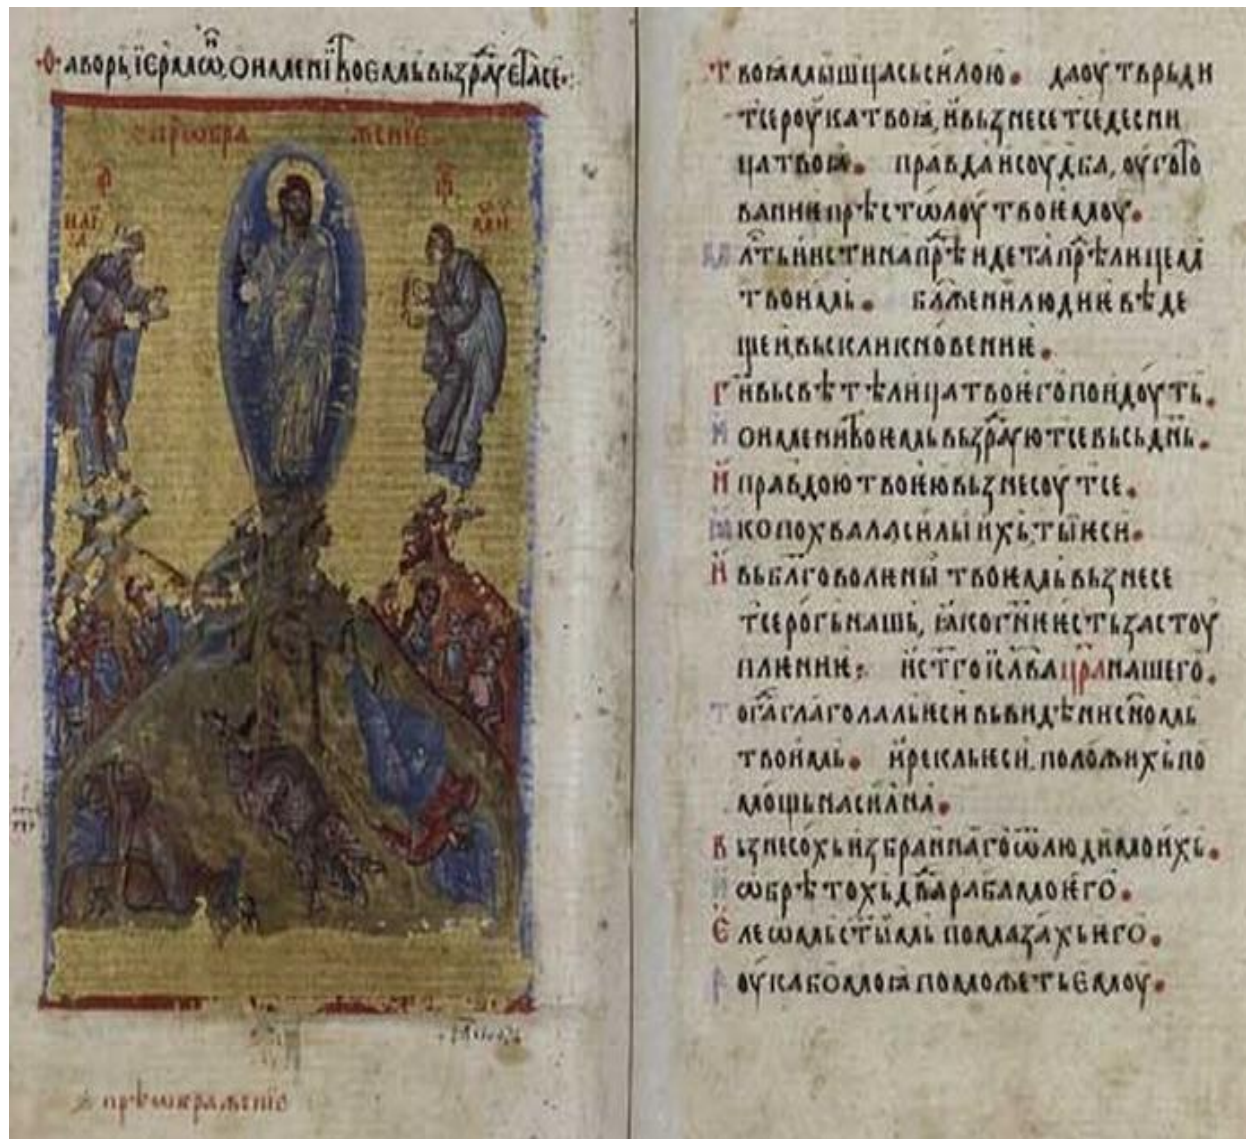 Ѳаворь їермѡⷩ҇ ѡ имени твоемь вьзраⷣуетасе:
прѣѡбра жениѥ
Твоꙗ мышцасьсилою. даоутврьди
тсероукатвоꙗ, ивьзнесетседесни
цатвоꙗ. правдаисоудба, оугото
ваниѥпрѣстѡлоутвоѥмоу.
млⷭ҇тьиистинапрⷣѣидетапрⷣѣлицемь
твоимь. блаⷤениилюдиѥвѣде
щеивьскликновениѥ.
Гⷭ҇ивьсвѣтѣлицатвоѥгопоидоуть.
Иоименитвоѥмьвьзраⷣуютсевьсьдн҃ь.
Иправдоютвоѥювьзнесоутсе.
ꙗкопохваласилыихьтыѥси.
Ивьблаговолѥнытвоѥмьвьзнесе
тсерогьнашь, ꙗкогⷭ҇нѥѥстьзастоу
плѥниѥ: ист҃гоїс҃лвацр҃ꙗнашего.
Тогⷣаглаголальѥсивьвидѣниисн҃омь
твоимь. ирекльѥси, положихьпо
мощьнасилна.
Вьзнесохьизбраннагоѿлюдимоихь.
Иѡбрѣтохьдв҃дарабамоѥго.
Елеѡмьст҃ымьпомазахьѥго.
Роукабомоꙗпоможетьемоу.
прѣѡбражениѥ